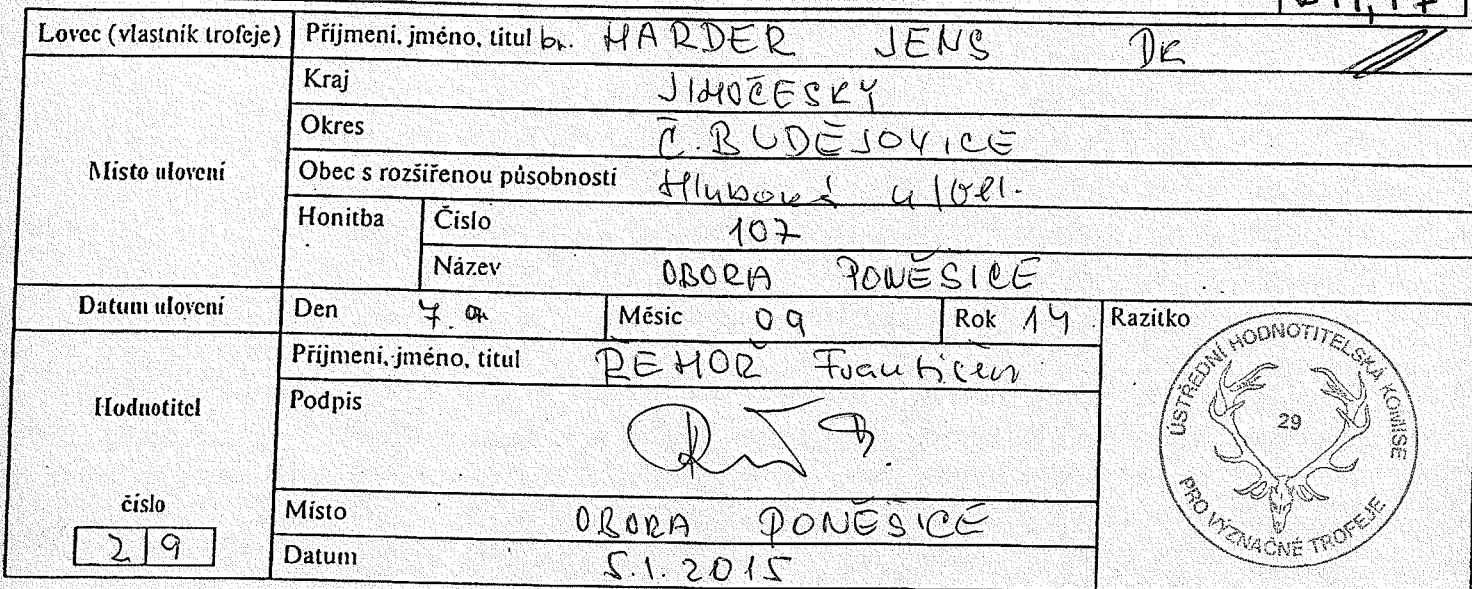 Lovec (vlastník trofeje) Příjmení, jméno, titul HARDER JENS DK
Místo ulovení
Kraj JIHOČESKÝ
Okres Č. BUDĚJOVICE
Obec s rozšířenou působností Hluboká
Honitba Číslo 107
Název OBORA PONĚŠICE
Datum ulovení Den 7. Měsíc 09 Rok 14 Razítko
Hodnotitel
Příjmení, jméno, titul ŘEHOŘ František
Podpis
číslo
29
Místo OBORA PONĚŠICE
Datum 5.1.2015
ÚSTŘEDNÍ HODNOTITELSKÁ KOMISE
29
PRO VÝZNAČNÉ TROFEJE